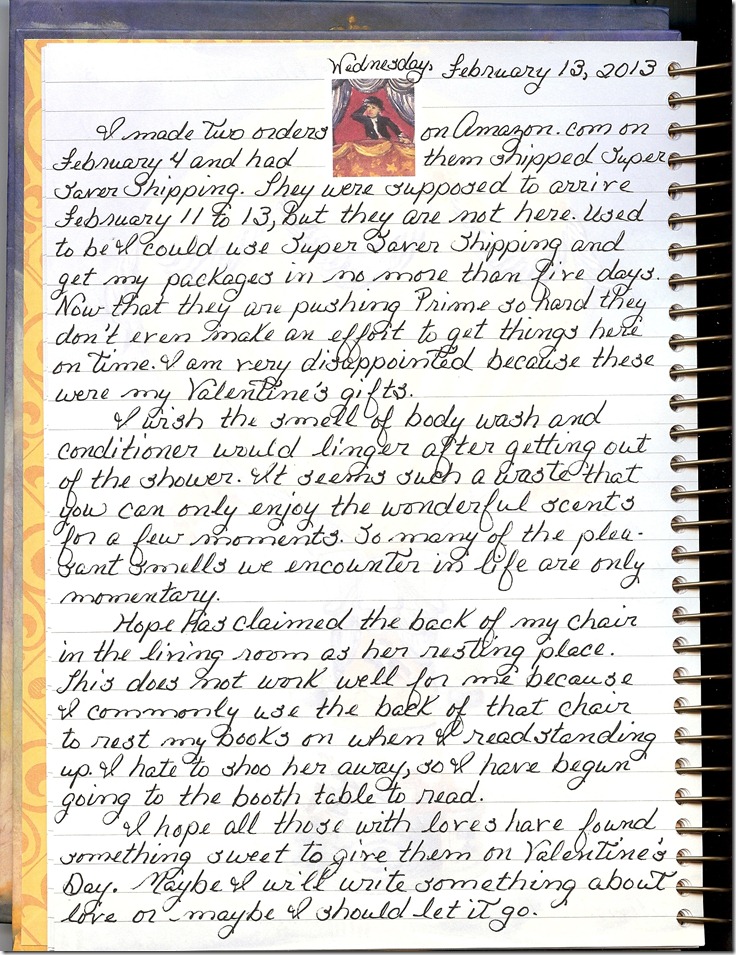 Wednesday, February 13, 2013
I made two orders on Amazon.com on
February 4 and had them shipped Super
Saver Shipping. They were supposed to arrive
February 11 to 13, but they are not here. Used
to be I could use Super Saver Shipping and
get my packages in no more than five days.
Now that they are pushing Prime so hard they
don't even make an effort to get things here
on time. I am very disappointed because these
were my Valentine's gifts.
I wish the smell of body wash and
conditioner would linger after getting out
of the shower. It seems such a waste that
you can only enjoy the wonderful scents
for a few moments. So many of the plea-
sant smells we encounter in life are only
momentary.
Hope has claimed the back of my chair
in the living room as her resting place.
This does not work well for me because
I commonly use the back of that chair
to rest my books on when I read standing
up. I hate to shoo her away, so I have begun
going to the booth table to read.
I hope all those with loves have found
something sweet to give them on Valentine's
Day. Maybe I will write something about
love or maybe I should let it go.